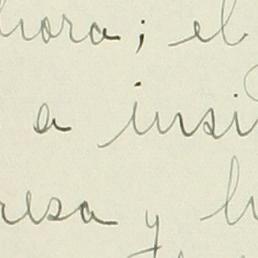 hora; el
a insi
resa y